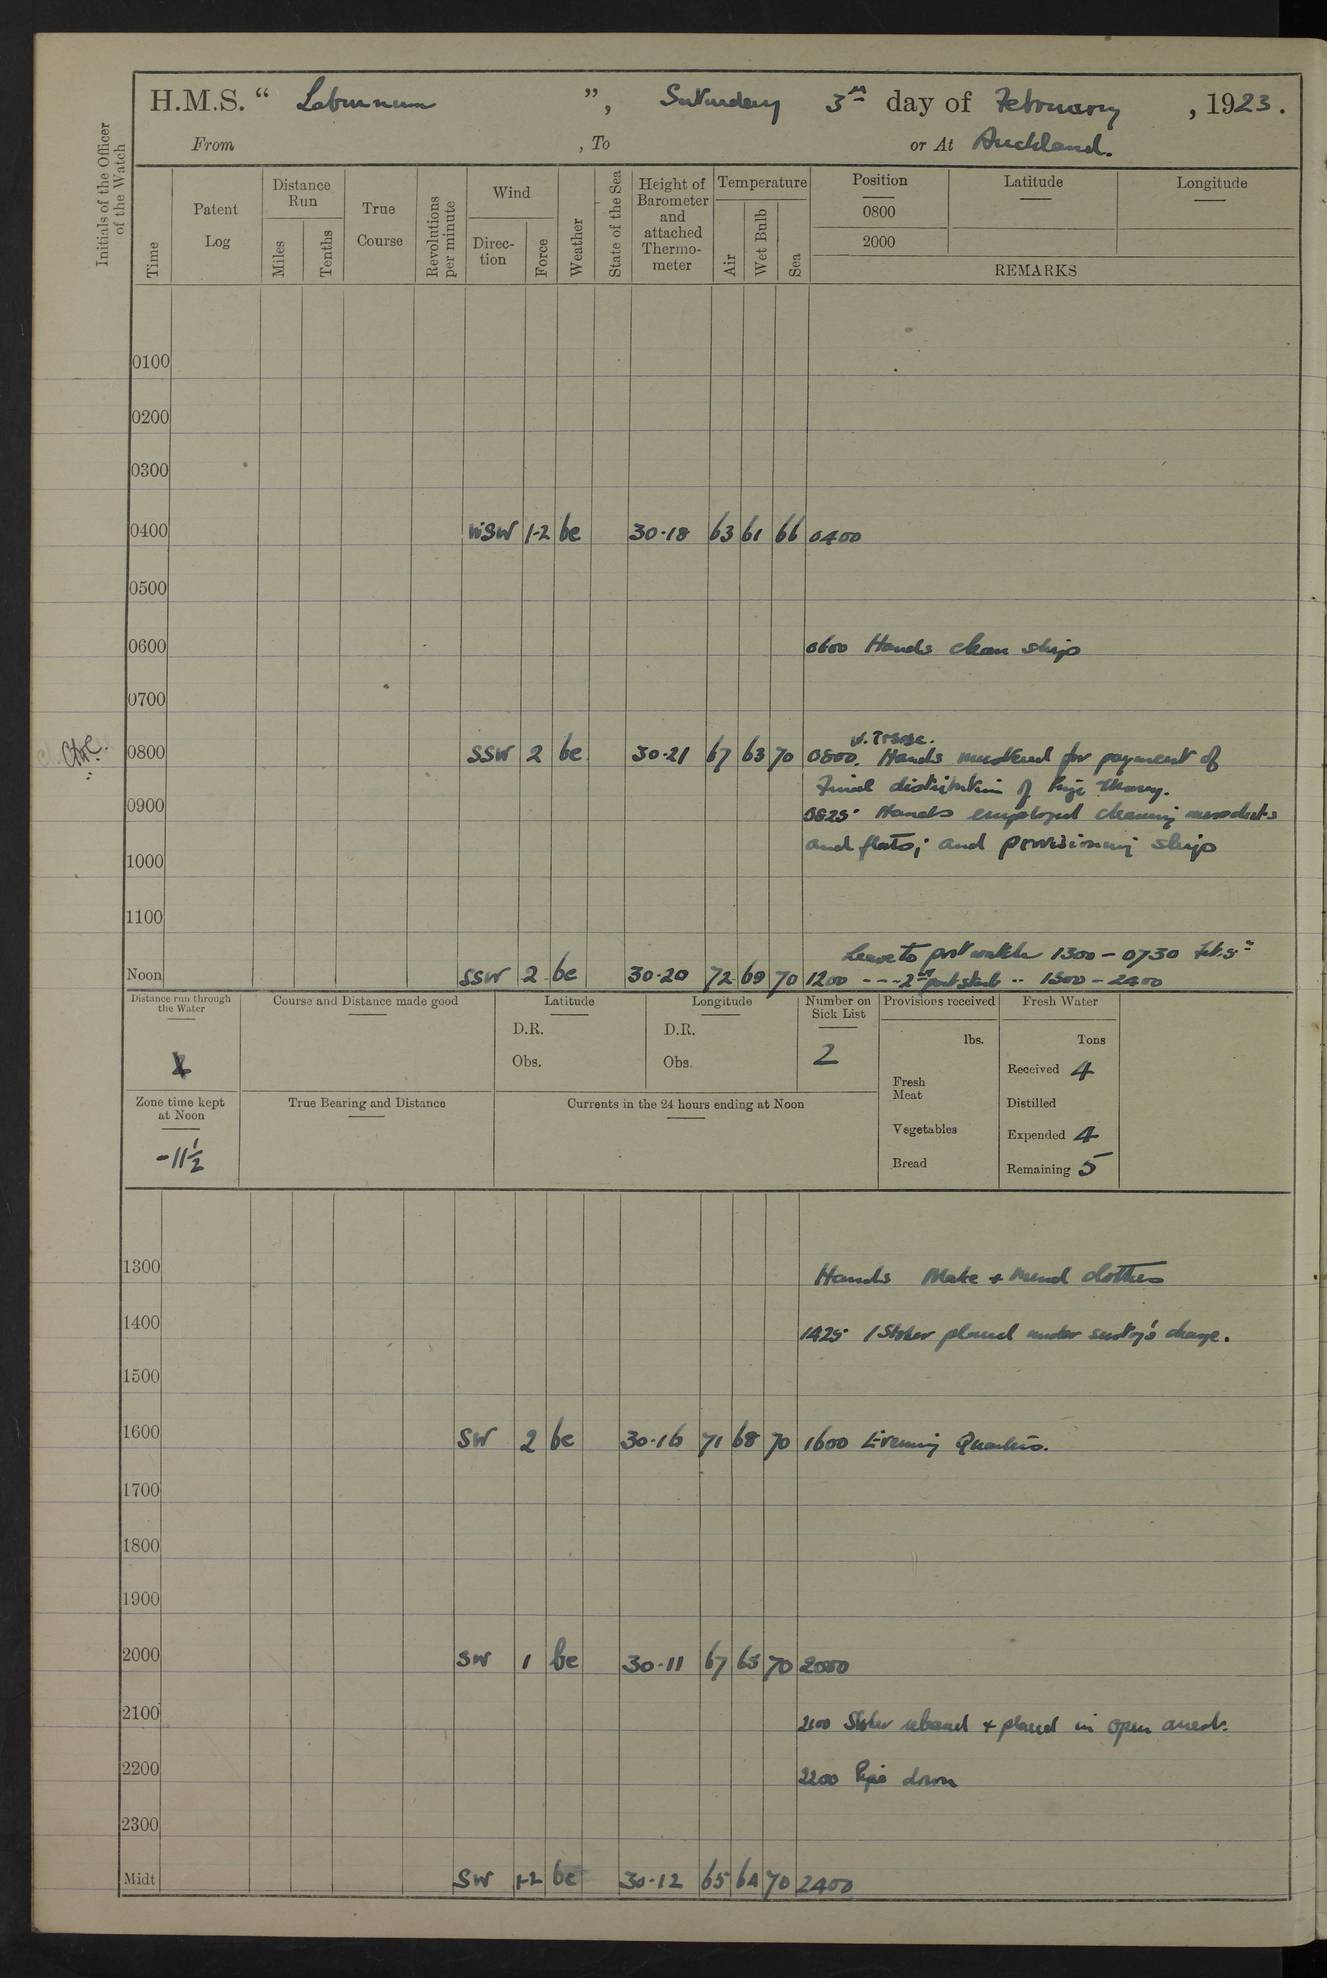 H.M.S. “ Laburnum ”, Saturday 3rd day of February , 1923.
From , To or At Auckland.
Initials of the Officer of the Watch
Time
Patent Log
Distance Run
Miles
Tenths
True Course
Revolutions per minute
Wind
Direc-tion
Force
Weather
State of the Sea
Height of Barometer and attached Thermo-meter
Temperature
Air
Wet Bulb
Sea
Position Latitude Longitude
0800
2000
REMARKS
0100
0200
0300
0400 WSW 1-2 bc 30·18 63 61 66 0400
0500
0600 0600 Hands clean ship
0700
0800 SSW 2 bc 30·21 67 63 70 0800. Hands mustered for payment of
Final distribution of Prize Money.
0900 0825 Hands employed cleaning messdecks
and flats; and provisioning ship
1000
1100
Leave to port watch 1300 – 0730 Feb. 5th
Noon SSW 2 bc 30·20 72 69 70 1200 - - - 2nd part stbd .. 1300 – 2400
Distance run through the Water
Course and Distance made good
Latitude
D.R.
Obs.
Longitude
D.R.
Obs.
Number on Sick List
2
Provisions received
lbs.
Fresh Meat
Vegetables
Bread
Fresh Water
Tons
Received 4
Distilled
Expended 4
Remaining 5
Zone time kept at Noon
-11½
True Bearing and Distance
Currents in the 24 hours ending at Noon
1300 Hands Make + Mend clothes
1400 1425 1 Stoker placed under sentry's charge.
1500
1600 SW 2 bc 30·16 71 68 70 1600 Evening Quarters.
1700
1800
1900
2000 SW 1 bc 30·11 67 65 70 2000
2100 2100 Stoker released + placed in open arrest.
2200 2200 Pipe down
2300
Midt SW 1-2 bc 30·12 65 64 70 2400